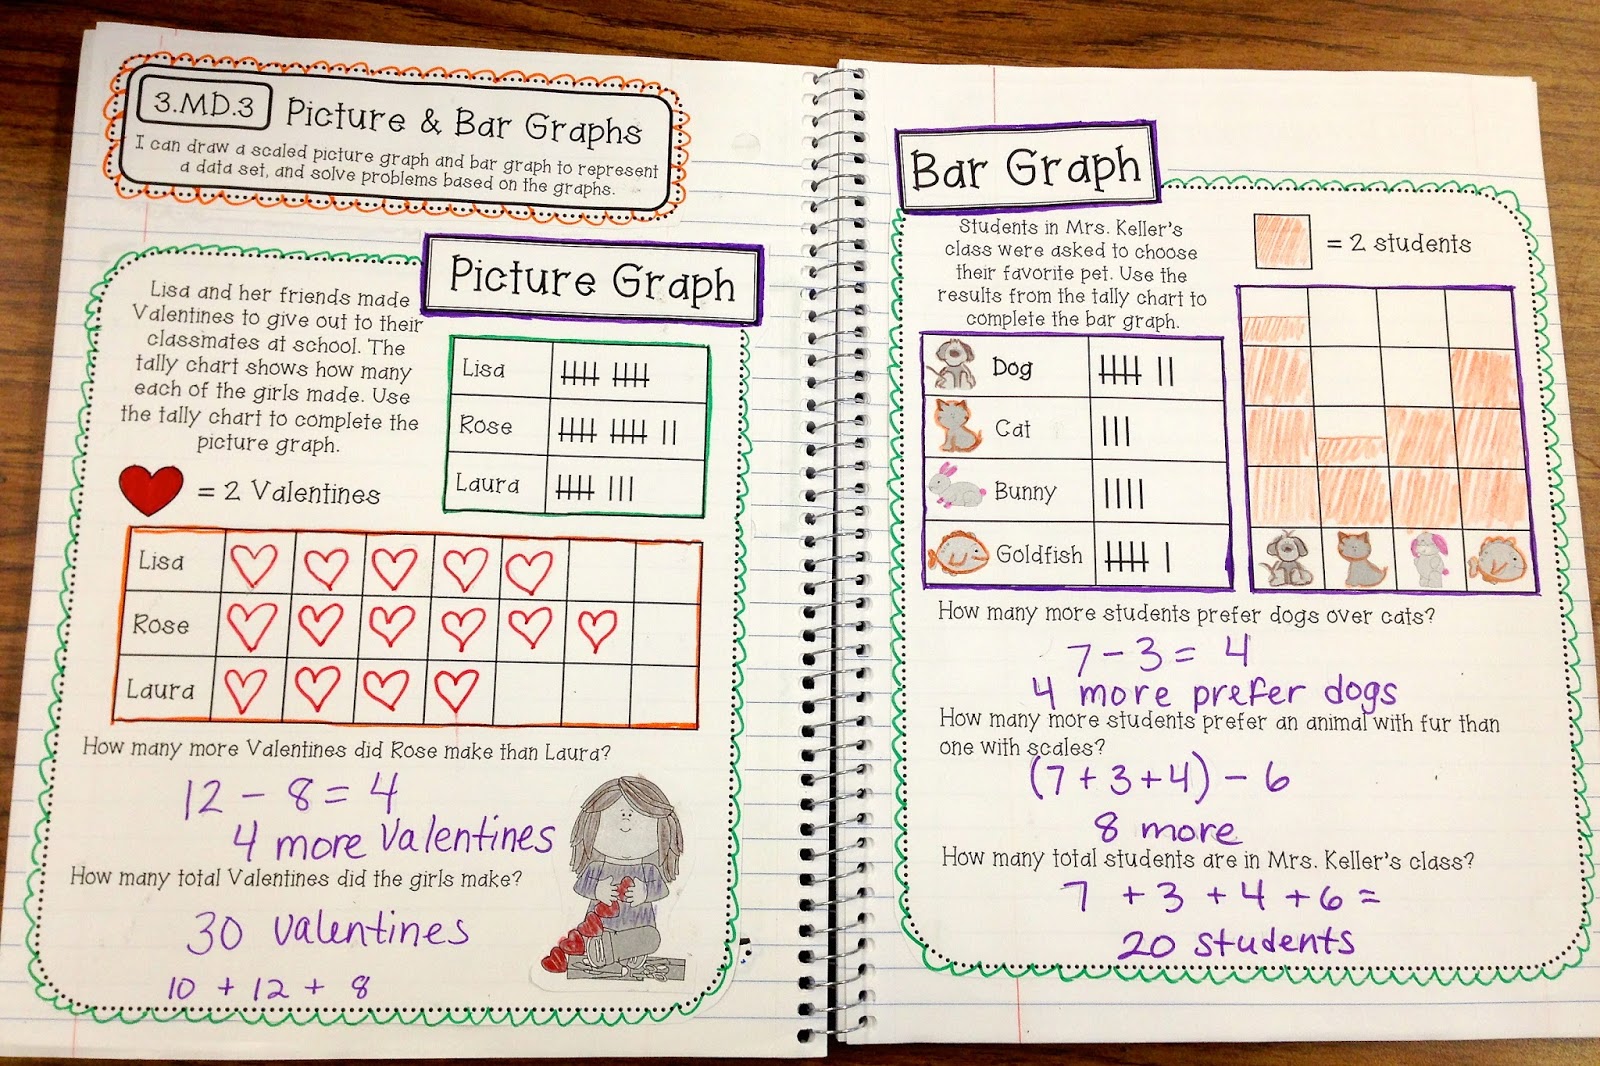 3.MD.3 Picture & Bar Graphs
I can draw a scaled picture graph and bar graph to represent
a data set, and solve problems based on the graphs.
Picture Graph
Lisa and her friends made
Valentines to give out to their
classmates at school. The
tally chart shows how many
each of the girls made. Use
the tally chart to complete the
picture graph.
= 2 Valentines
Lisa
Rose
Laura
Lisa
Rose
Laura
How many more Valentines did Rose make than Laura?
12 - 8 = 4
4 more Valentines
How many total Valentines did the girls make?
30 valentines
10 + 12 + 8
Bar Graph
Students in Mrs. Keller's
class were asked to choose
their favorite pet. Use the
results from the tally chart to
complete the bar graph.
= 2 students
Dog
Cat
Bunny
Goldfish
How many more students prefer dogs over cats?
7 - 3 = 4
4 more prefer dogs
How many more students prefer an animal with fur than
one with scales?
(7 + 3 + 4) - 6
8 more
How many total students are in Mrs. Keller's class?
7 + 3 + 4 + 6 =
20 students